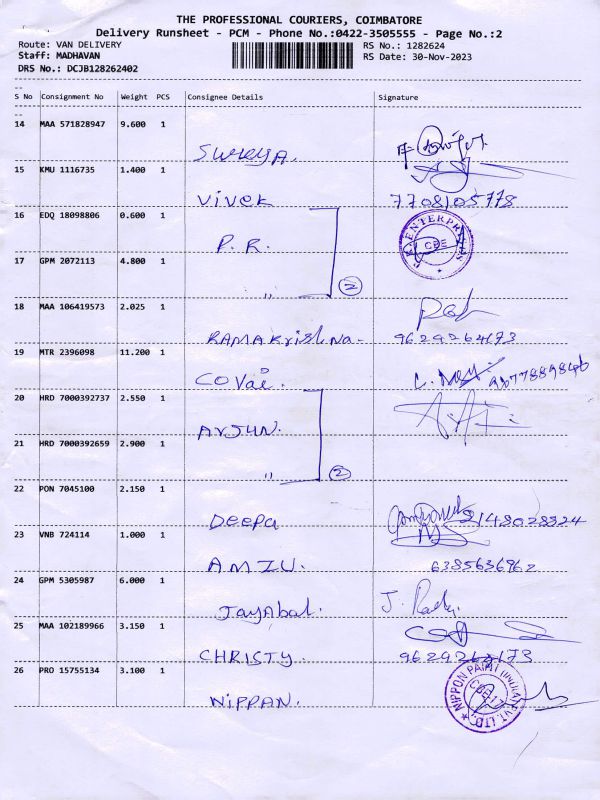 THE PROFESSIONAL COURIERS, COIMBATORE
Delivery Runsheet - PCM - Phone No.:0422-3505555 - Page No.:2
Route: VAN DELIVERY RS No.: 1282624
Staff: MADHAVAN RS Date: 30-Nov-2023
DRS No.: DCJB128262402
S No Consignment No Weight PCS Consignee Details Signature
14 MAA 571828947 9.600 1
Surya.
15 KMU 1116735 1.400 1
Vivek 7708105778
16 EDQ 18098806 0.600 1
P.R. ENTERPRISES CBE
17 GPM 2072113 4.800 1
" 2
18 MAA 106419573 2.025 1
RAMAKrishna- 9629264173
19 MTR 2396098 11.200 1
COVai. 9677889846
20 HRD 7000392737 2.550 1
Arjun.
21 HRD 7000392659 2.900 1
" 2
22 PON 7045100 2.150 1
Deepa 9148028324
23 VNB 724114 1.000 1
AMZU. 6385636962
24 GPM 5305987 6.000 1
Jayabal. J.
25 MAA 102189966 3.150 1
CHRISTY. 9629264173
26 PRO 15755134 3.100 1
NIPPAN. NIPPON PAINT (INDIA) PVT. LTD.